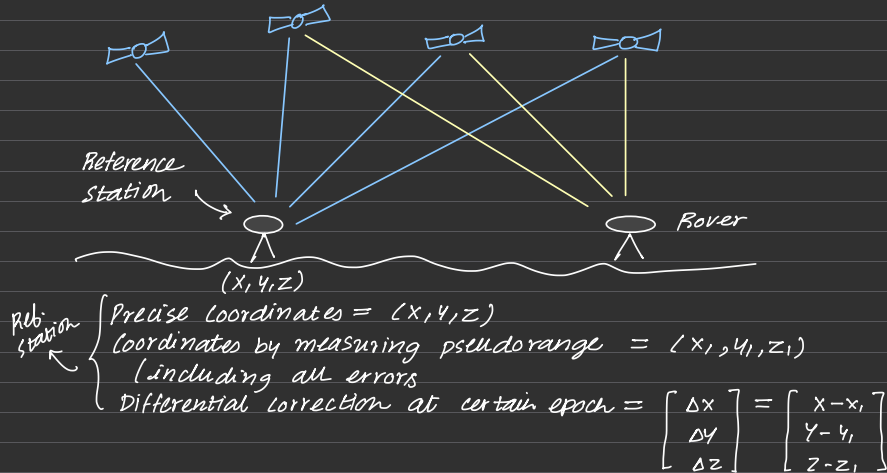 Reference
station
Rover
(x,y,z)
Ref.
station
Precise coordinates = (x,y,z)
Coordinates by measuring pseudorange = (x₁,y₁,z₁)
(including all errors
Differential correction at certain epoch = [Δx] = [x-x₁]
[Δy] [y-y₁]
[Δz] [z-z₁]